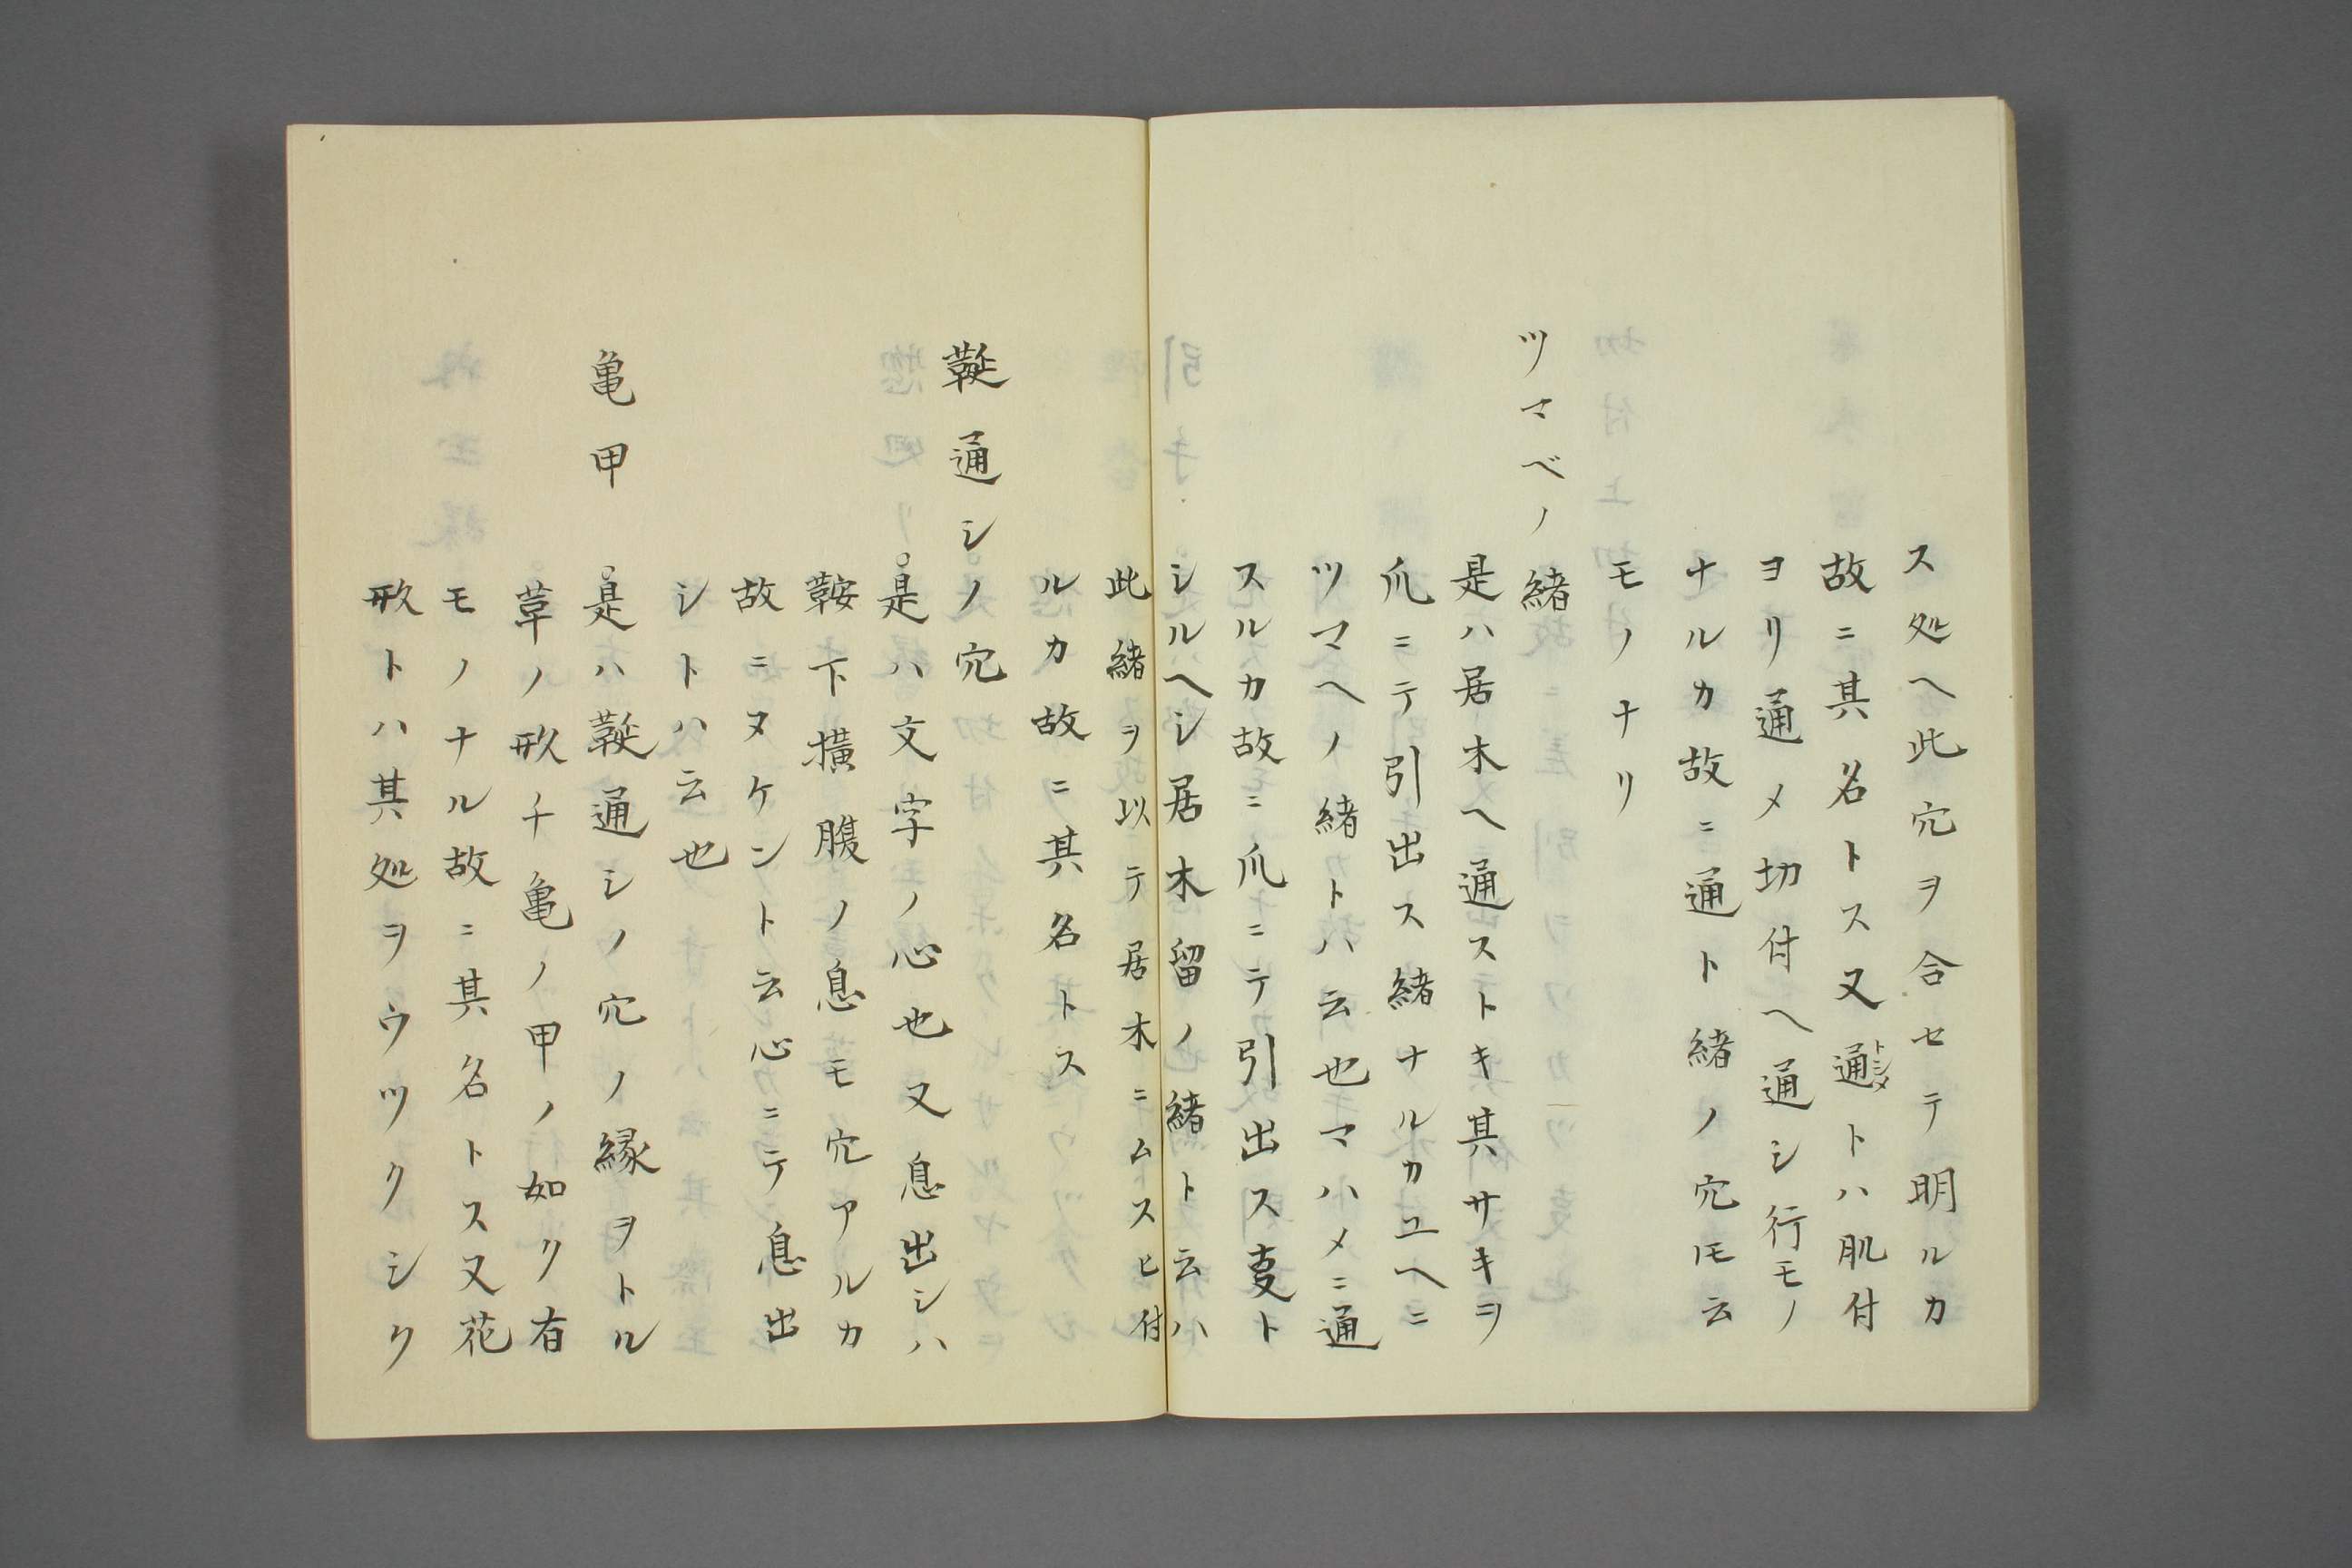 ス処ヘ此穴ヲ合セテ明ルカ
故ニ其名トス又通トハ肌付
トシメ
ヨリ通メ切付ヘ通シ行モノ
ナルカ故ニ通ト緒ノ穴ㇳモ云
モノナリ
ツマベノ緒
是ハ居木ヘ通ストキ其サキヲ
爪ニテ引出ス緒ナルカユヘニ
ツマヘノ緒トハ云也マハメニ通
スルカ故ニ爪ニテ引出ス叓ト
シルヘシ居木留ノ緒ト云ハ
此緒ヲ以テ居木ニムスヒ付
ルカ故ニ其名トス
鞓通シノ穴
。是ハ文字ノ心也又息出シハ
鞍下横腹ノ息モ穴アルカ
故ニヌケントニ云心ニテ息出
シトハ云也
亀甲
。是ハ鞓通シノ穴ノ縁ヲトル
草ノ形チ亀ノ甲ノ如ク有
モノナル故ニ其名トス又花
形トハ其処ヲウツクシク